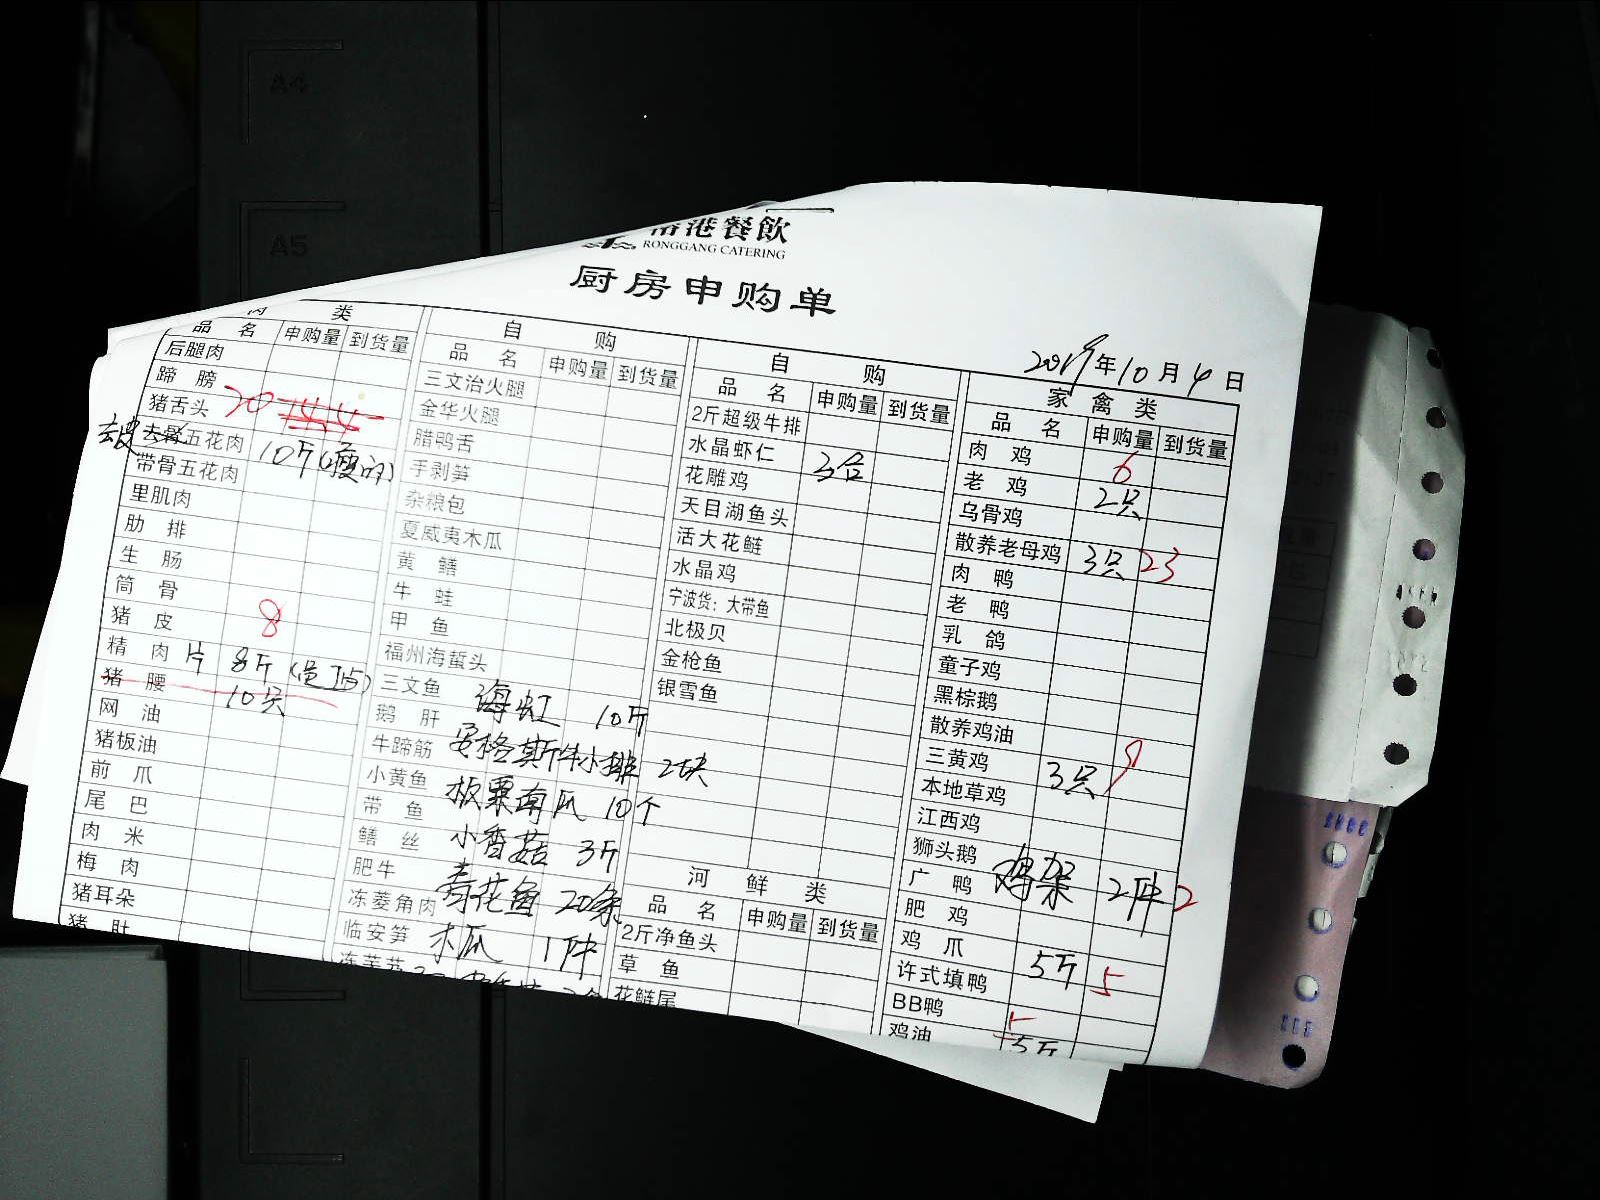 港餐飲
RONGGANG CATERING
厨房申购单
2019年10月4日
肉 类
品 名 申购量 到货量
后腿肉
蹄 膀
猪舌头 20
去皮 去骨五花肉 10斤(瘦的)
带骨五花肉
里肌肉
肋 排
生 肠
筒 骨
猪 皮 8
精 肉 片 8斤
猪 腰 10只
网 油
猪板油
前 爪
尾 巴
肉 米
梅 肉
猪耳朵
猪 肚
自 购
品 名 申购量 到货量
三文治火腿
金华火腿
腊鸭舌
手剥笋
杂粮包
夏威夷木瓜
黄 鳝
牛 蛙
甲 鱼
福州海蜇头
三文鱼 海虹 10斤
鹅 肝
牛蹄筋 安格斯牛小排 2块
小黄鱼 板栗南瓜 10个
带 鱼
鳝 丝 小香菇 3斤
肥牛 青花鱼 20条
冻菱角肉
临安笋 木瓜 1件
自 购
品 名 申购量 到货量
2斤超级牛排
水晶虾仁 3合
花雕鸡
天目湖鱼头
活大花鲢
水晶鸡
宁波货：大带鱼
北极贝
金枪鱼
银雪鱼
河 鲜 类
品 名 申购量 到货量
2斤净鱼头
草 鱼
花鲢尾
家 禽 类
品 名 申购量 到货量
肉 鸡 6
老 鸡 2只
乌骨鸡
散养老母鸡 3只 23
肉 鸭
老 鸭
乳 鸽
童子鸡
黑棕鹅
散养鸡油
三黄鸡 3只 9
本地草鸡
江西鸡
狮头鹅
广 鸭 鸡架 2件 2
肥 鸡
鸡 爪 5斤 5
许式填鸭
BB鸭
鸡油 5斤
A4
A5